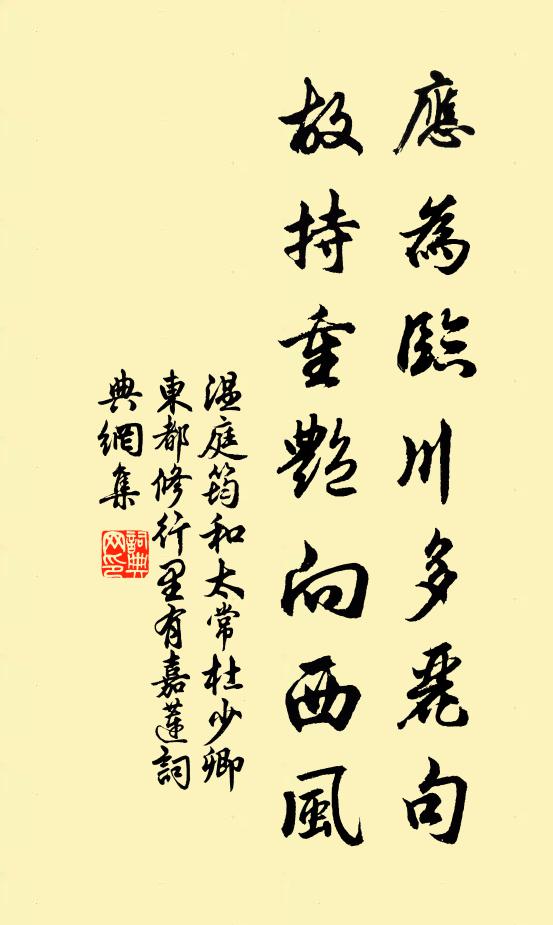 應為臨川多麗句
故持重艷向西風
温庭筠和太常杜少卿
東都修行里有嘉蓮詞
典網集
詞典
网印